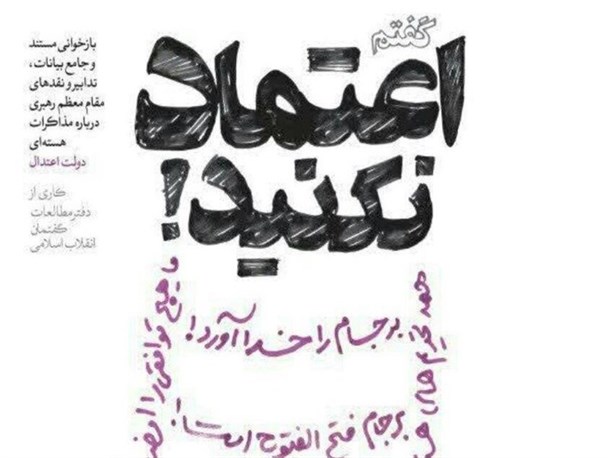 گفتم
اعتماد
نکنید!
بازخوانی مستند
و جامع بیانات،
تدابیر و نقدهای
مقام معظم رهبری
درباره مذاکرات
هسته‌ای
دولت اعتدال
کاری از
دفتر مطالعات
گفتمان
انقلاب اسلامی
برجام را خدا آورد!
برجام فتح الفتوح است!
ما هیچ توافقی را امضا
همه تحریم های